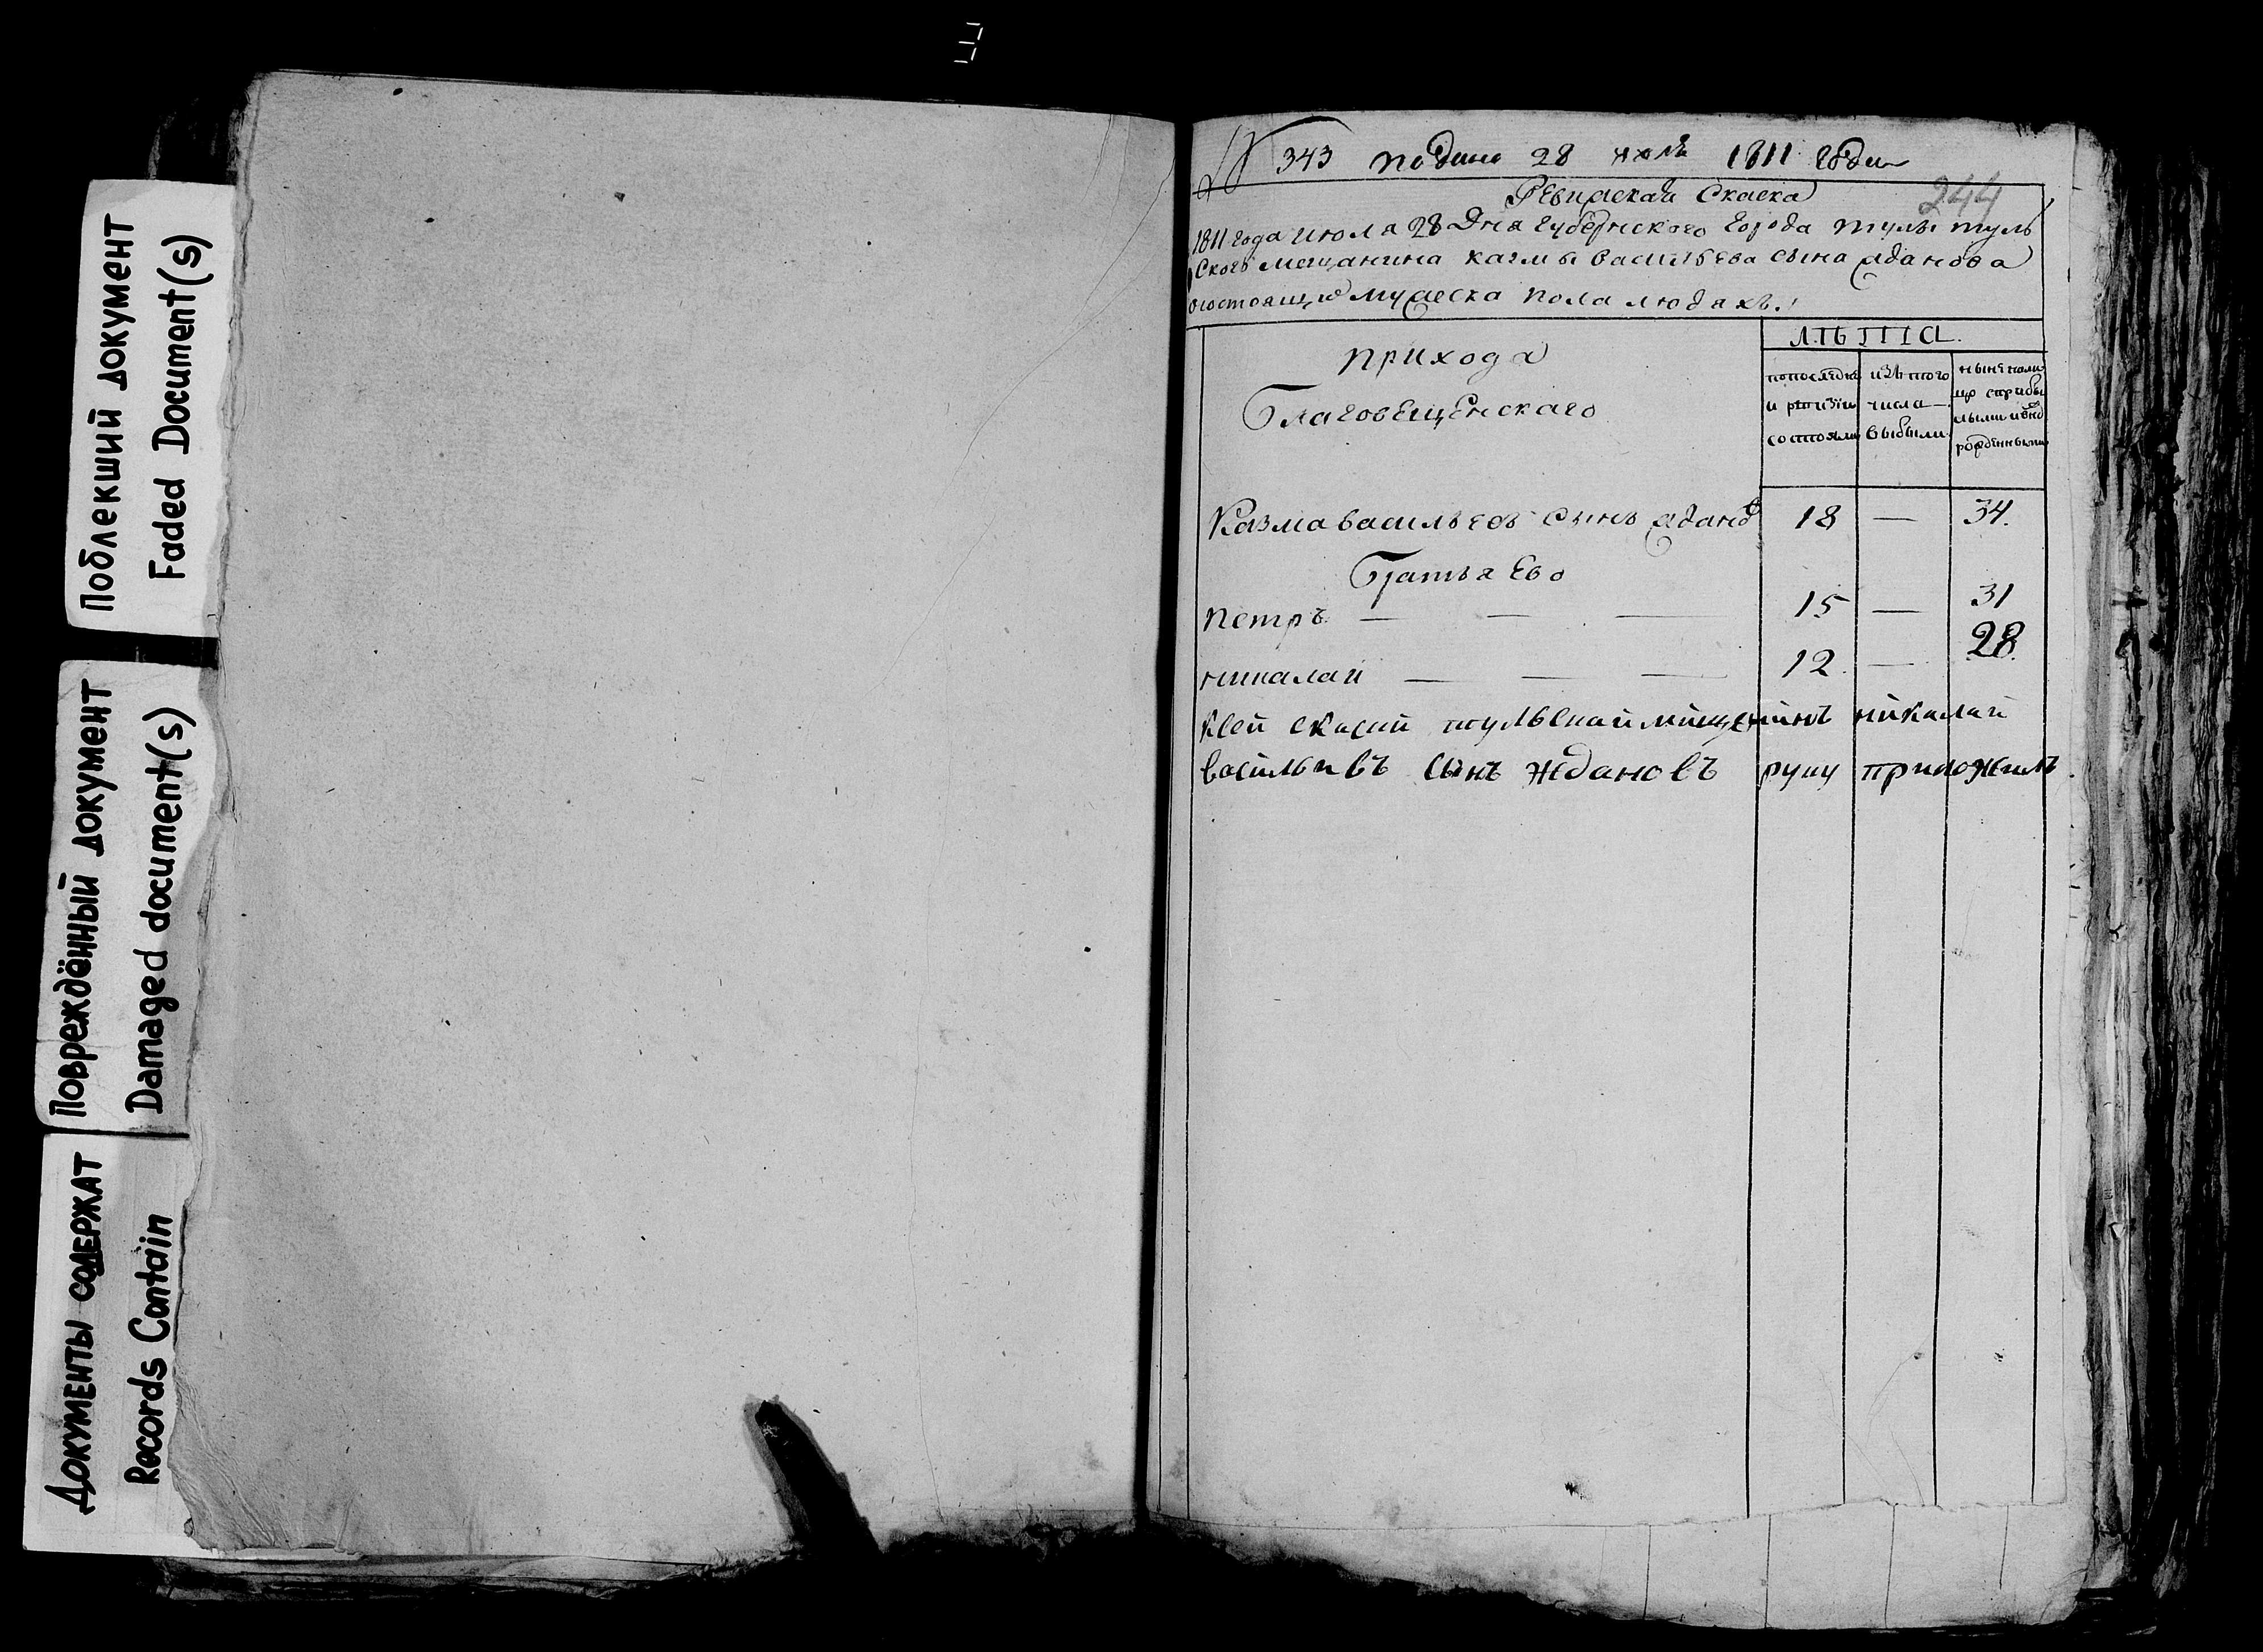 Поблекший документ
Faded Document(s)
Повреждённый документ
Damaged document(s)
Документы содержат
Records Contain
№ 343 подана 28 июля 1811 года
244
Ревижская Скаска
1811 года июля 28 Дня губернского города тулы туль
ского мещанина казмы васильева сына жданова
осостоящих мужеска пола людахъ.
прихода
Благовещенского
ЛѢТТА.
попоследне
и ревизии
состояли
изътого
числа
выбыли
ныне нали
цо сприбы
лыми ивно
рожденными
Казма васильевъ сынъ ждановъ 18 — 34.
Братья Ево
петръ — — — 15 — 31
никалай — — — 12 — 28.
ксей скаски тульскай мищенинъ никалай
васильивъ сынъ ждановъ руку приложилъ